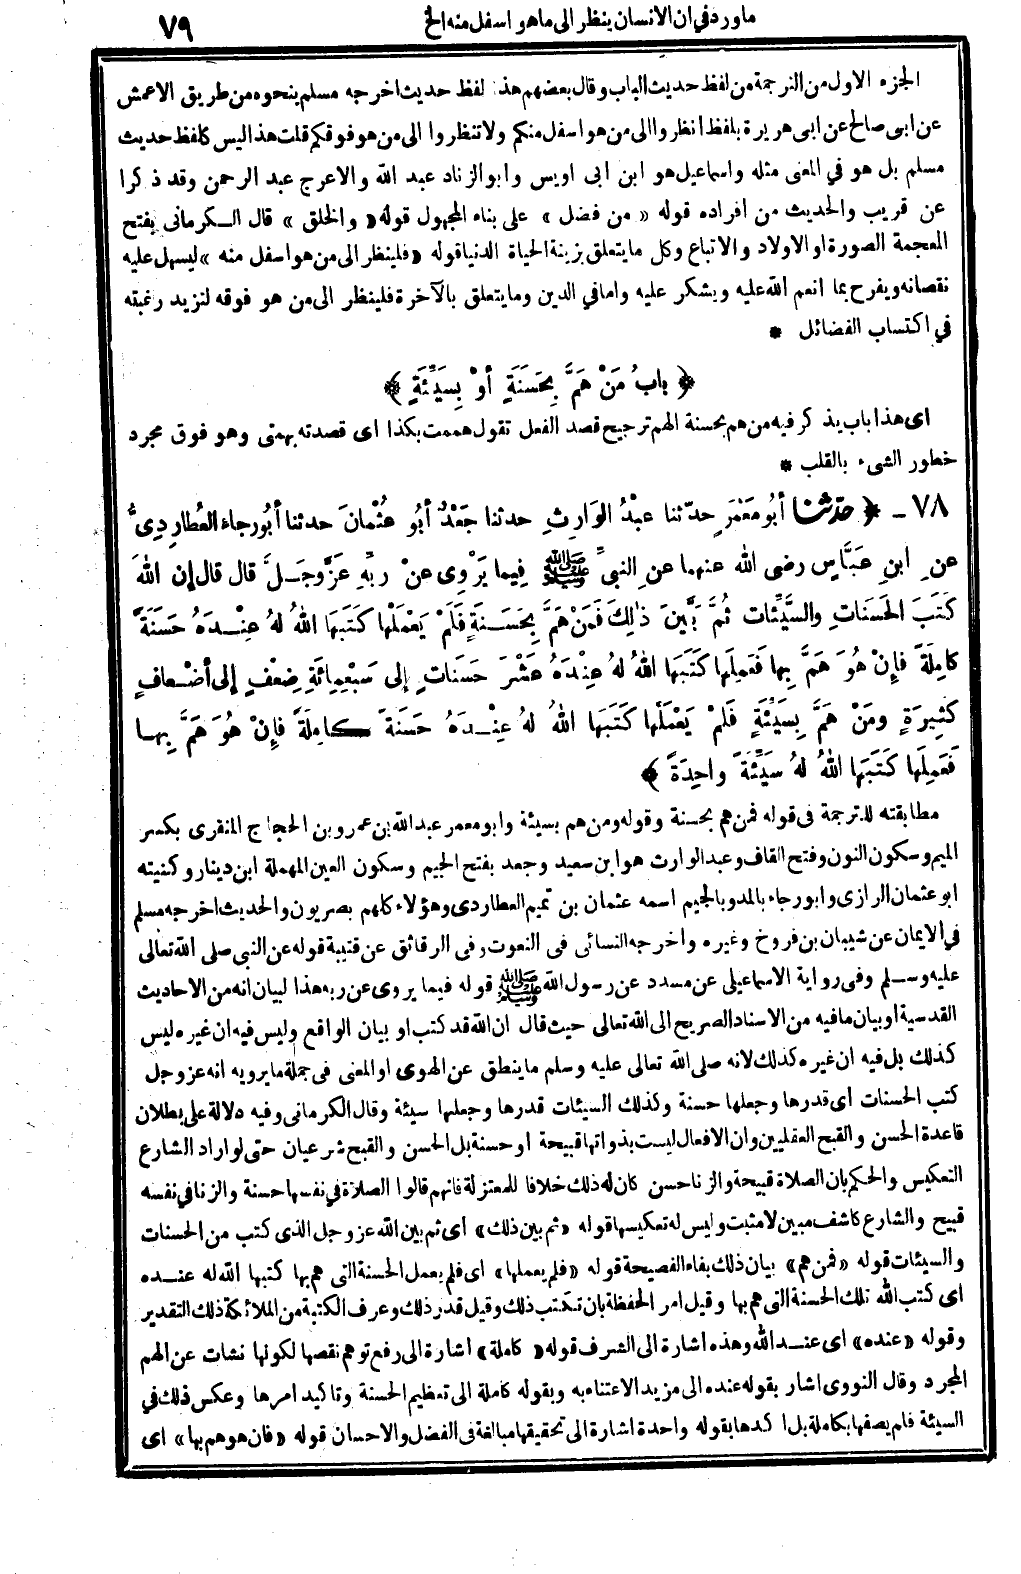 ماورد في ان الانسان ينظر الى ما هو اسفل منه الخ
٧٩
الجزء الاول من الترجمة من لفظ حديث الباب وقال بعضهم هذا لفظ حديث اخرجه مسلم بنحوه من طريق الاعمش
عن ابى صالح عن ابى هريرة بلفظ انظروا الى من هو اسفل منكم ولا تنظروا الى من هو فوقكم قلت هذا ليس كلفظ حديث
مسلم بل هو في المعنى مثله واسماعيل هو ابن ابى اويس وابو الزناد عبد الله والاعرج عبد الرحمن وقد ذكرا
عن قريب والحديث من افراده قوله «من فضل» على بناء المجهول قوله «والخلق» قال الكرمانى بفتح
المعجمة الصورة او الاولاد والاتباع وكل ما يتعلق بزينة الحياة الدنيا قوله «فلينظر الى من هو اسفل منه» ليسهل عليه
نقصانه ويفرح بما انعم الله عليه ويشكر عليه واما في الدين وما يتعلق بالآخرة فلينظر الى من هو فوقه لتزيد رغبته
في اكتساب الفضائل *
﴿ بابُ مَنْ هَمَّ بِحَسَنَةٍ أوْ بِسَيِّئَةٍ ﴾
اى هذا باب يذكر فيه من هم بحسنة الهم ترجيح قصد الفعل تقول هممت بكذا اى قصدته بهمتى وهو فوق مجرد
خطور الشىء بالقلب *
٧٨ - ﴿ حدّثنا أبُو مَعْمَرٍ حدّثنا عبْدُ الوَارِثِ حدثنا جَعْدٌ أبُو عُثْمانَ حدثنا أبُو رجاءٍ العُطارِدِىُّ
عنِ ابنِ عبَّاسٍ رضى الله عنهما عنِ النبىِّ ﷺ فِيما يَرْوِى عنْ ربِّهِ عزَّ وجَلَّ قال قال إن اللهَ
كَتَبَ الحَسَناتِ والسَّيِّئاتِ ثُمَّ بَيَّنَ ذٰلِكَ فَمَنْ هَمَّ بِحَسَنَةٍ فَلَمْ يَعْمَلْها كَتَبَها اللهُ لهُ عِنْدَهُ حَسَنَةً
كامِلَةً فإنْ هُوَ هَمَّ بِها فَعَمِلَها كَتَبَها اللهُ لهُ عِنْدَهُ عَشْرَ حَسَناتٍ إلى سَبْعِمِائَةِ ضِعْفٍ إلى أضْعافٍ
كَثِيرَةٍ ومَنْ هَمَّ بِسَيِّئَةٍ فَلَمْ يَعْمَلْها كَتَبَها اللهُ لهُ عِنْدَهُ حَسَنَةً كامِلَةً فإنْ هُوَ هَمَّ بِها
فَعَمِلَها كَتَبَها اللهُ لهُ سَيِّئَةً واحِدَةً ﴾
مطابقته للترجمة فى قوله فمن هم بحسنة وقوله ومن هم بسيئة وابو معمر عبد الله بن عمرو بن الحجاج المنقرى بكسر
الميم وسكون النون وفتح القاف وعبد الوارث هو ابن سعيد وجعد بفتح الجيم وسكون العين المهملة ابن دينار وكنيته
ابو عثمان الرازى وابو رجاء بالمد وبالجيم اسمه عثمان بن تميم العطاردى وهؤلاء كلهم بصريون والحديث اخرجه مسلم
في الايمان عن شيبان بن فروخ وغيره واخرجه النسائى فى النعوت وفى الرقائق عن قتيبة قوله عن النبى صلى الله تعالى
عليه وسلم وفى رواية الاسماعيلى عن مسدد عن رسول الله ﷺ قوله فيما يروى عن ربه هذا لبيان انه من الاحاديث
القدسية أو بيان ما فيه من الاسناد الصريح الى الله تعالى حيث قال ان الله قد كتب او بيان الواقع وليس فيه ان غيره ليس
كذلك بل فيه ان غيره كذلك لانه صلى الله تعالى عليه وسلم ما ينطق عن الهوى او المعنى فى جملة ما يرويه انه عز وجل
كتب الحسنات اى قدرها وجعلها حسنة وكذلك السيئات قدرها وجعلها سيئة وقال الكرمانى وفيه دلالة على بطلان
قاعدة الحسن والقبح العقليين وان الافعال ليست بذواتها قبيحة او حسنة بل الحسن والقبح شرعيان حتى لو اراد الشارع
التعكيس والحكم بان الصلاة قبيحة والزنا حسن كان له ذلك خلافا للمعتزلة فانهم قالوا الصلاة فى نفسها حسنة والزنا في نفسه
قبيح والشارع كاشف مبين لا مثبت وليس له تعكيسها قوله «ثم بين ذلك» اى ثم بين الله عز وجل الذى كتب من الحسنات
والسيئات قوله «فمن هم» بيان ذلك بفاء الفصيحة قوله «فلم يعملها» اى فلم يعمل الحسنة التى هم بها كتبها الله له عنده
اى كتب الله تلك الحسنة التى هم بها وقيل امر الحفظة بان تكتب ذلك وقيل قدر ذلك وعرف الكتبة من الملائكة ذلك التقدير
وقوله «عنده» اى عند الله وهذه اشارة الى الشرف قوله «كاملة» اشارة الى رفع توهم نقصها لكونها نشات عن الهم
المجرد وقال النووى اشار بقوله عنده الى مزيد الاعتناء به وبقوله كاملة الى تعظيم الحسنة وتاكيد امرها وعكس ذلك في
السيئة فلم يصفها بكاملة بل اكدها بقوله واحدة اشارة الى تحقيقها مبالغة فى الفضل والاحسان قوله «فان هو هم بها» اى